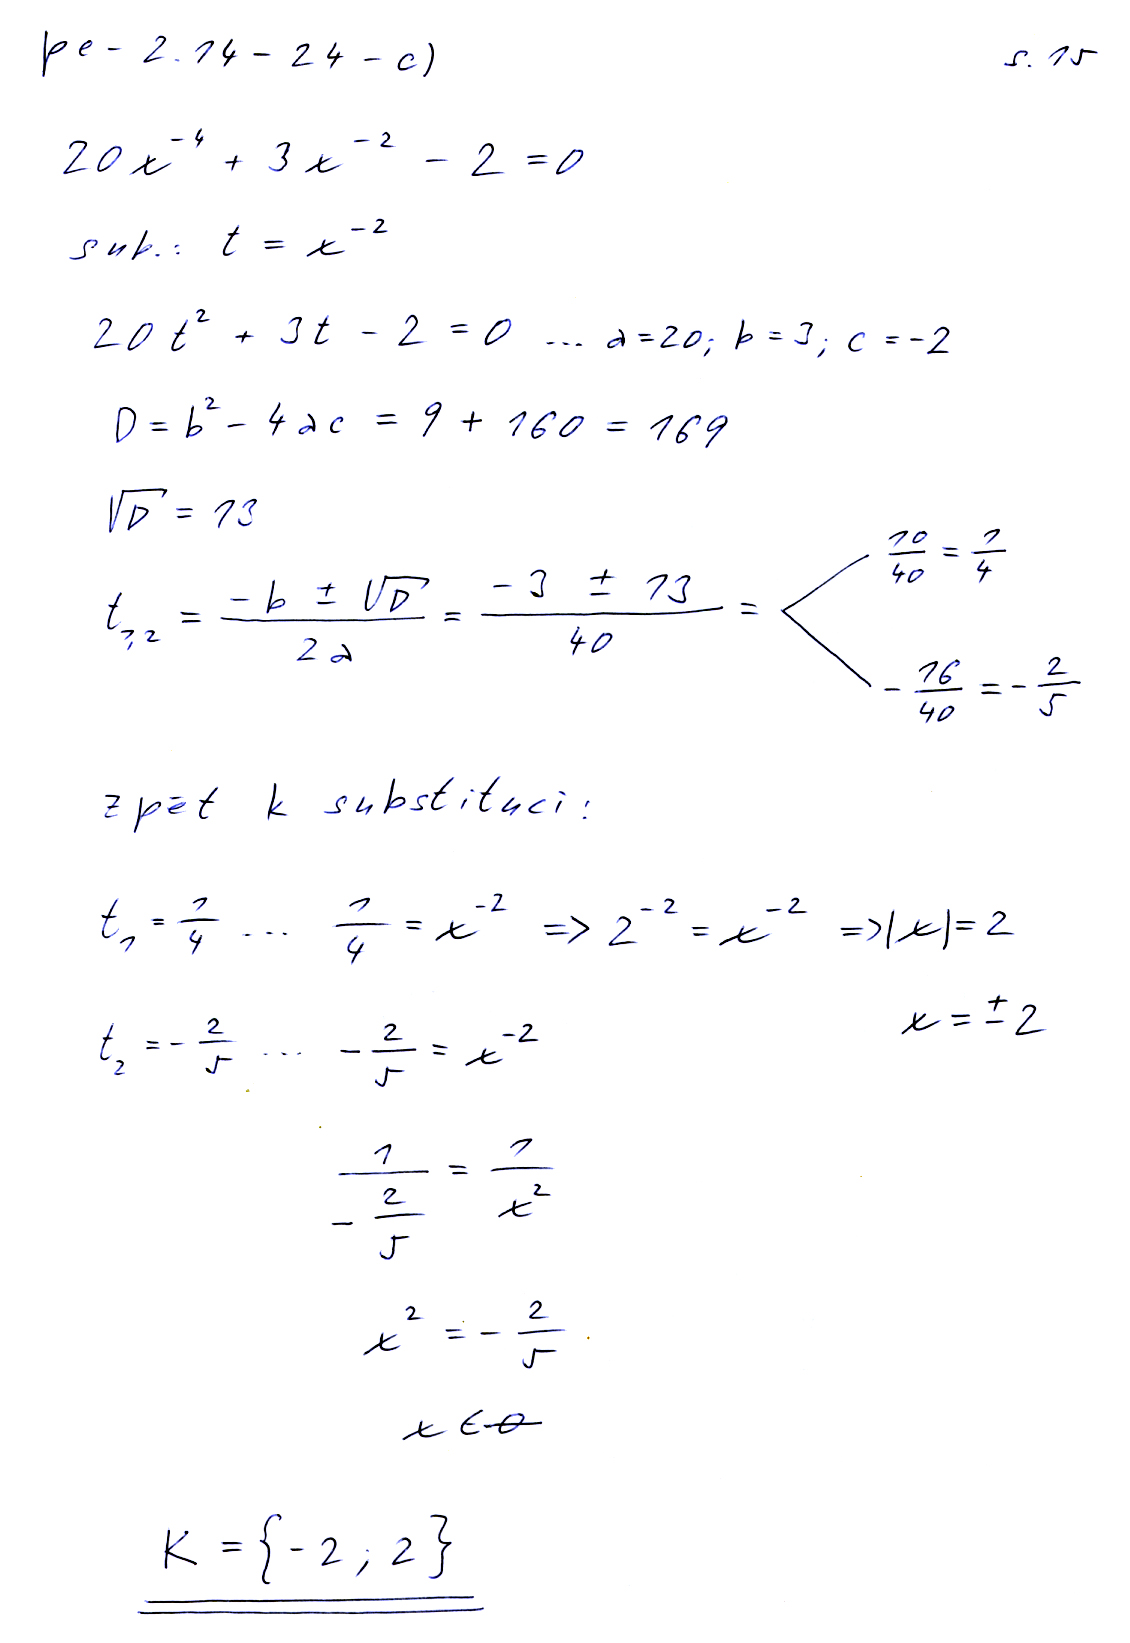 pe - 2.14 - 24 - c) s. 15
20x⁻⁴ + 3x⁻² - 2 = 0
sub.: t = x⁻²
20t² + 3t - 2 = 0 ... a=20; b=3; c=-2
D = b² - 4ac = 9 + 160 = 169
√D = 13
t₁,₂ = (-b ± √D)/(2a) = (-3 ± 13)/40 = 10/40 = 1/4
-16/40 = -2/5
zpět k substituci:
t₁ = 1/4 ... 1/4 = x⁻² => 2⁻² = x⁻² => |x| = 2
x = ±2
t₂ = -2/5 ... -2/5 = x⁻²
1/(-2/5) = 1/x²
x² = -2/5
x ∈ ∅
K = {-2; 2}